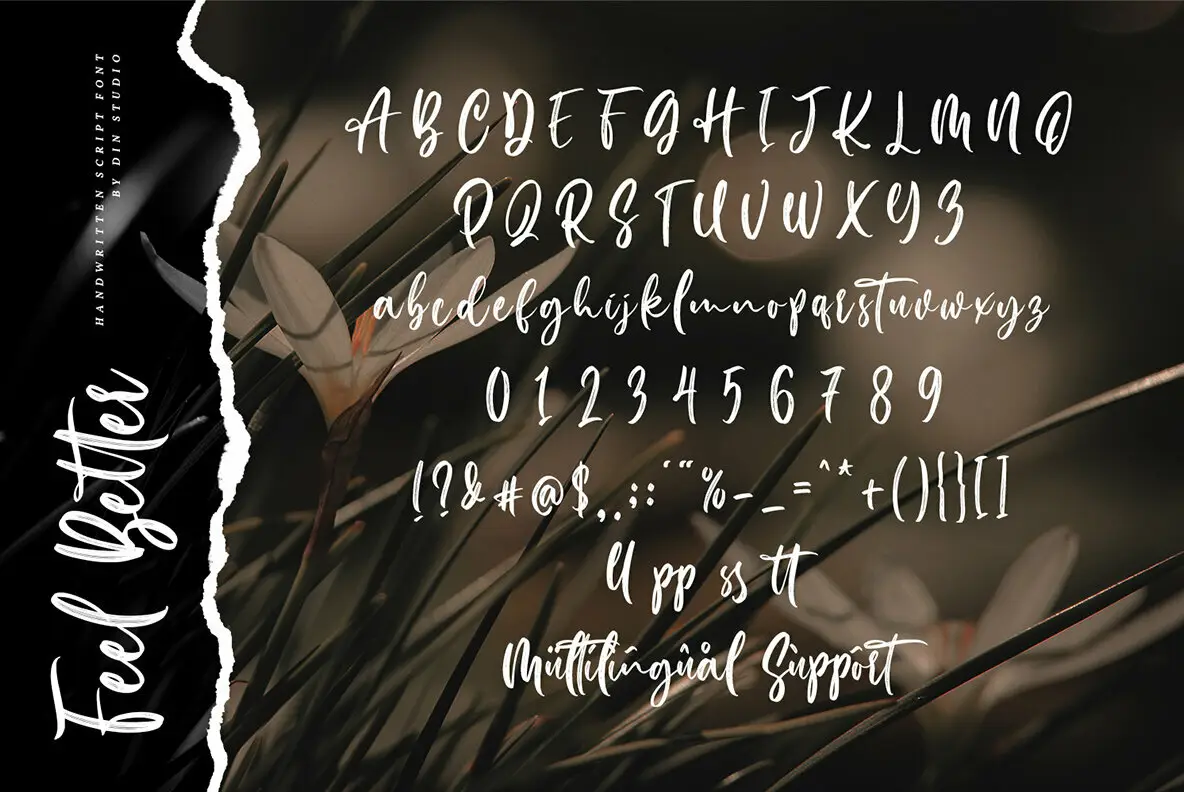 HANDWRITTEN SCRIPT FONT
BY DIN STUDIO
Feel Better
A B C D E F G H I J K L M N O
P Q R S T U V W X Y Z
a b c d e f g h i j k l m n o p q r s t u v w x y z
0 1 2 3 4 5 6 7 8 9
! ? & # @ $ , . ; : ' " % - _ = ^ * + ( ) { } [ ]
ll pp ss tt
Mültilîngûål Sùppôrt